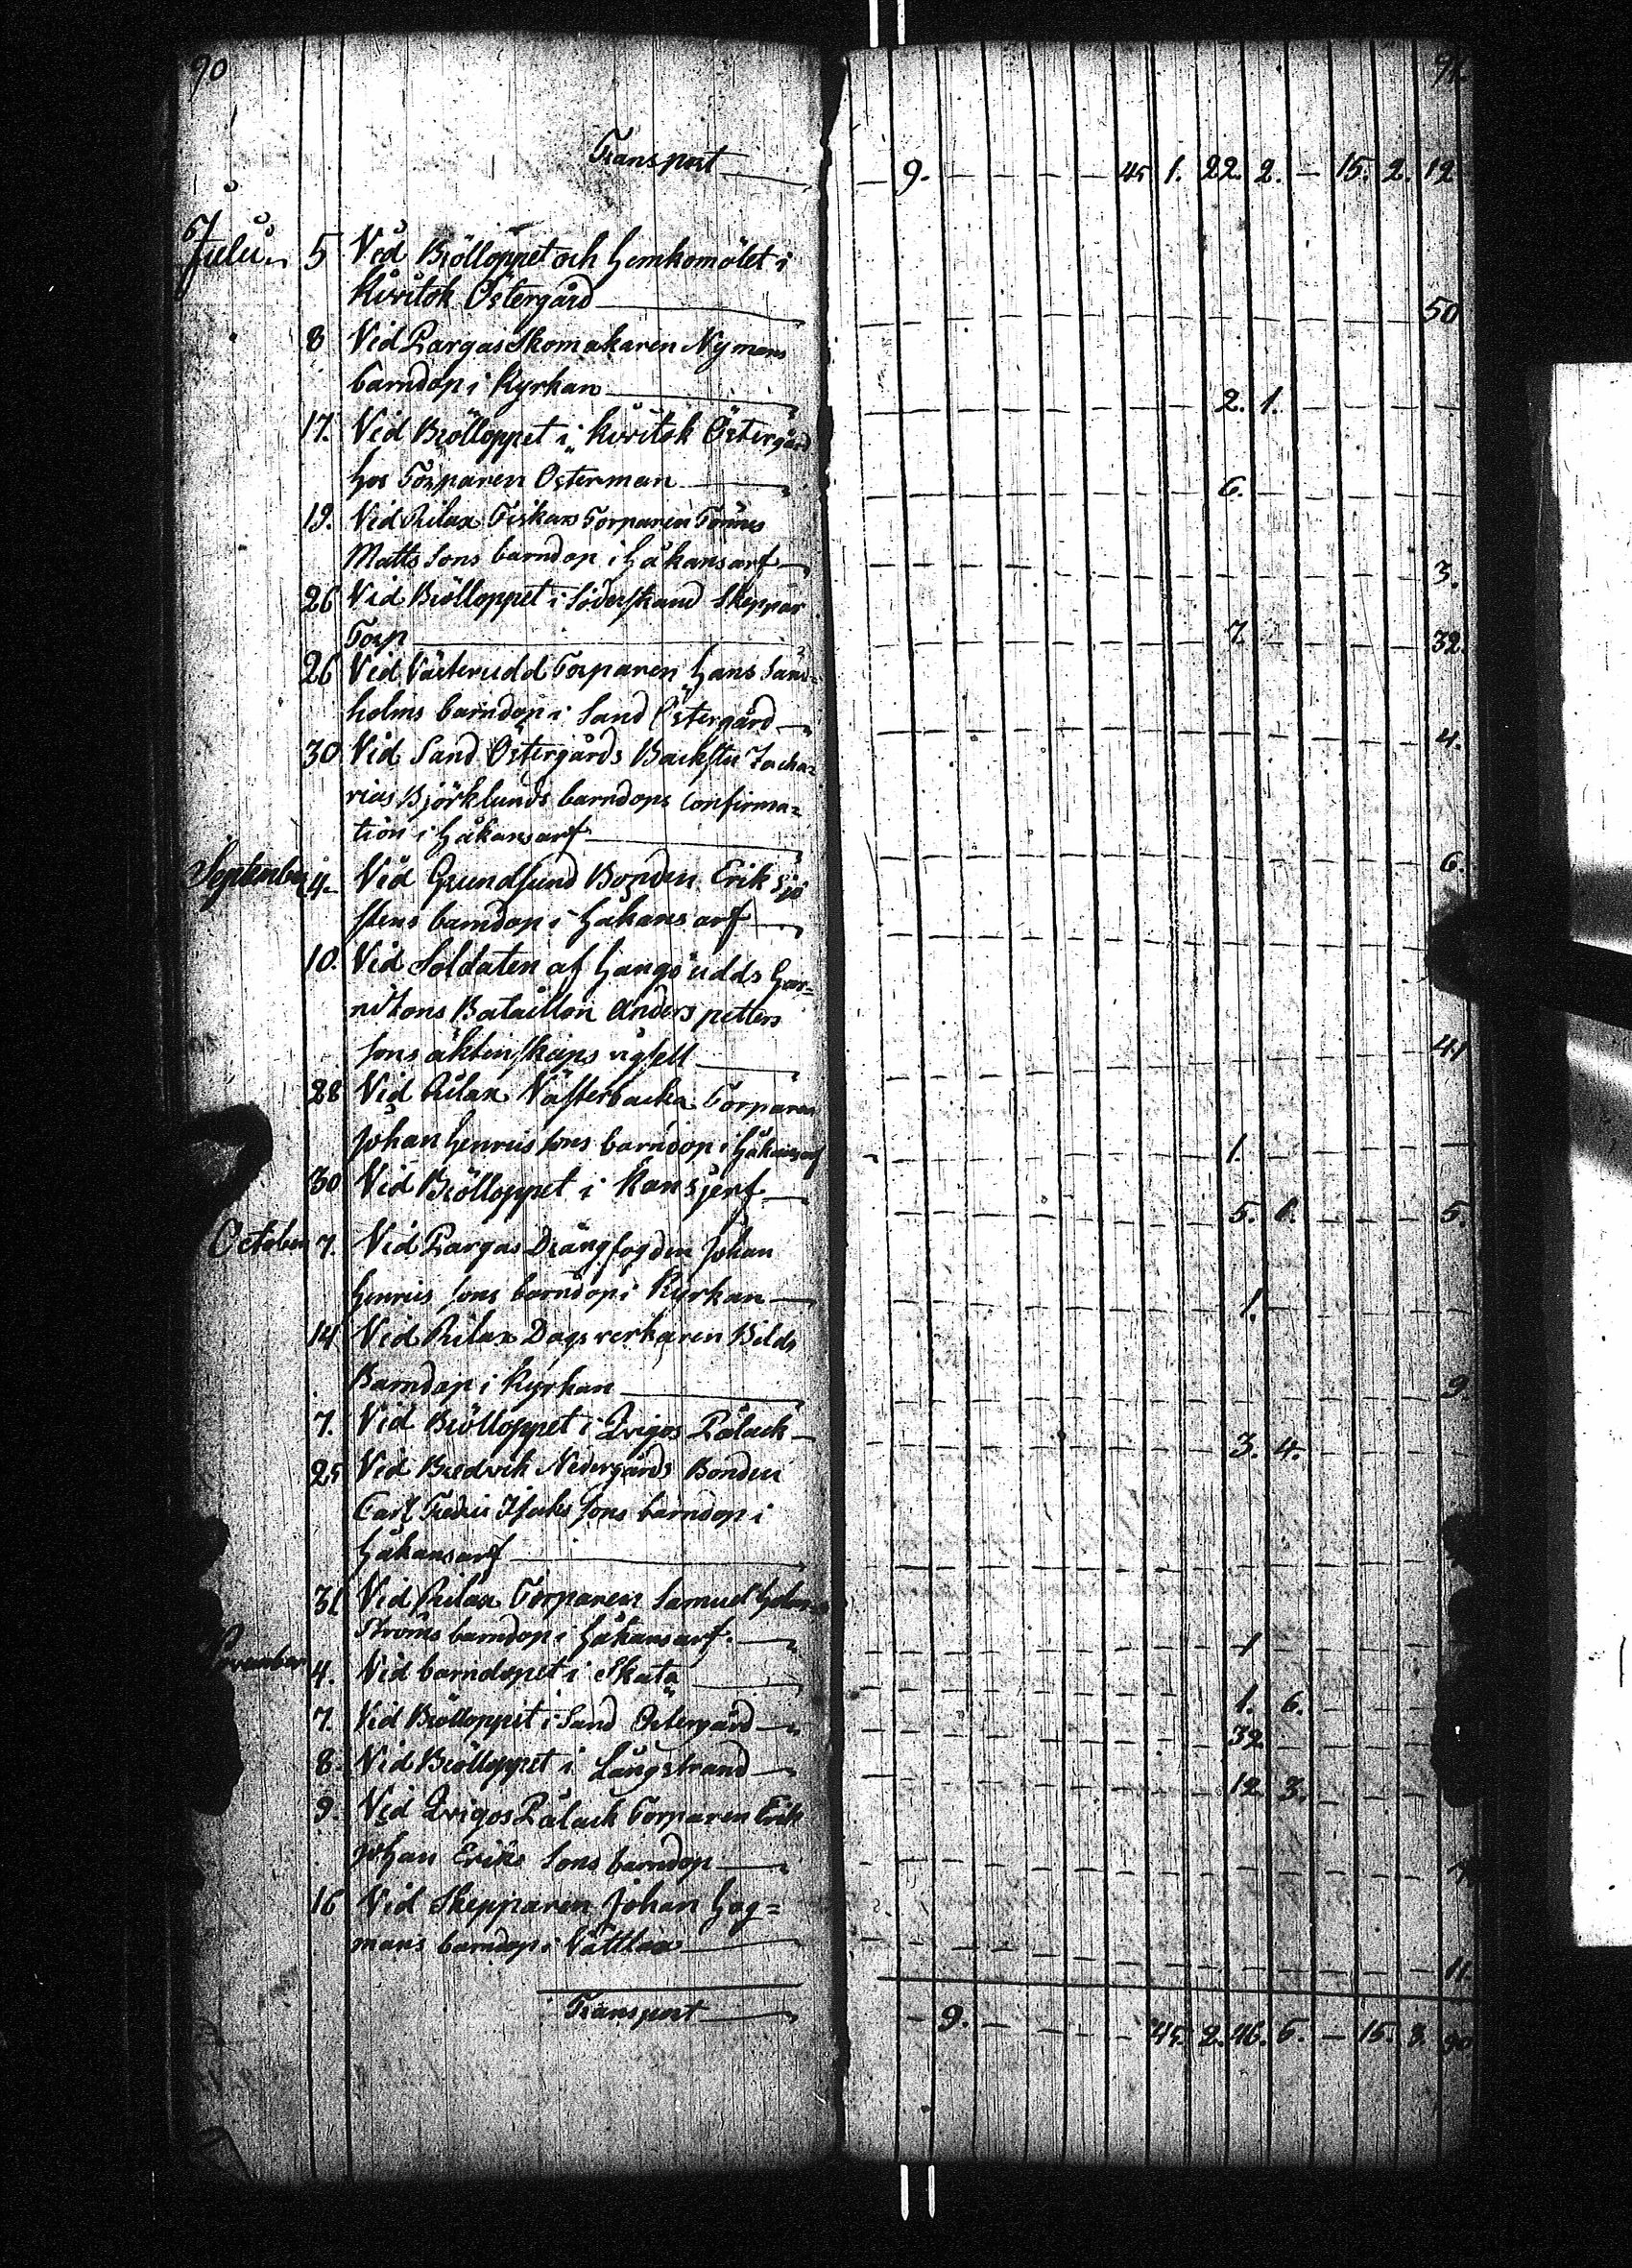 90
91
Transport — 9. — — — — 45 1. 22. 2. — 15. 2. 12
Julii 5 Vid Brölloppet och hemkomölet i
Kivitok Östergård — 50
8 Vid Pargas Skomakaren Nymans
barndop i Kyrkan — 2. 1.
17. Vid Brölloppet i Kivitok Östergård
hos Torparen Österman — 6.
19. Vid Rilax Fiskars Torparen
Matts Sons barndop i Håkansarf — 3.
26 Vid Brölloppet i Söderstrand Skeppar
Torp — 7. 32.
26 Vid Västerudd Torparen Hans Sand=
holms barndop i Sand Östergård — 4.
30 Vid Sand Östergårds Backstu Zacha=
rias Björklunds barndops Confirma=
tion i Håkansarf — 6.
September 4. Vid Grundsund Bonden Erik Sjö
stens barndop i Håkansarf —
10. Vid Soldaten af Hangöudds Gar=
nisons Bataillon Anders petters
sons äktenskaps vigsell — 41
28 Vid Rilax Västerbacka Torparen
Johan Henrics sons barndop i Håkansarf — 1.
30 Vid Brölloppet i Kansjerf — 5. 1. 5.
October 7. Vid Pargas Drängfogden Johan
Henrics sons barndop i Kyrkan — 1.
14 Vid Rilax Dagsverkaren Bilds
Barndop i Kyrkan — 9
7. Vid Brölloppet i Qvigos Pålack — 3. 4.
25 Vid Bredvik Nedergårds Bonden
Carl Fredric Isaks sons barndop i
Håkansarf —
31 Vid Rilax Torparen Samuel Holm
Ströms barndop i Håkansarf. — 1
November 4. Vid barndopet i Skata — 1. 6.
7. Vid Brölloppet i Sand Östergård — 32
8. Vid Brölloppet i Långstrand — 12. 3.
9. Vid Qvigos Pålack Torparen Erik
Johan Eriks Sons barndop —
16 Vid Skepparen Johan Hag=
mans barndop i Vättlax — 11.
Transport — 9. — — — — 45. 2. 46. 6. — 15. 3. 90